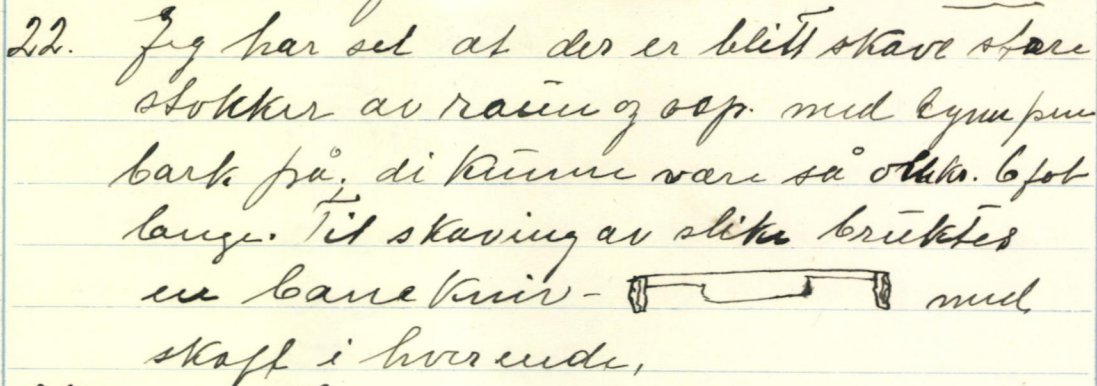 22. Jeg har set at der er blitt skave støre
stokker av raun og osp. med tynn pen
bark på. di kunne være så omkr. 6 fot
lange. Til skaving av slike bruktes
en barekniv- med
skaft i hver ende,